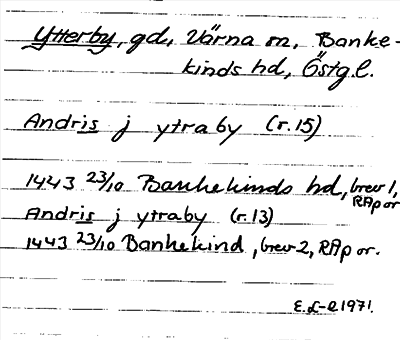 Ytterby, gd, Värna sn, Banke-
kinds hd, Östg.l.
Andris j ytraby (r.15)
1443 23/10 Bankekinds hd, brev 1,
RAp or
Andris j ytraby (r.13)
1443 23/10 Bankekind, brev 2, RAp or.
E.L-e 1971.